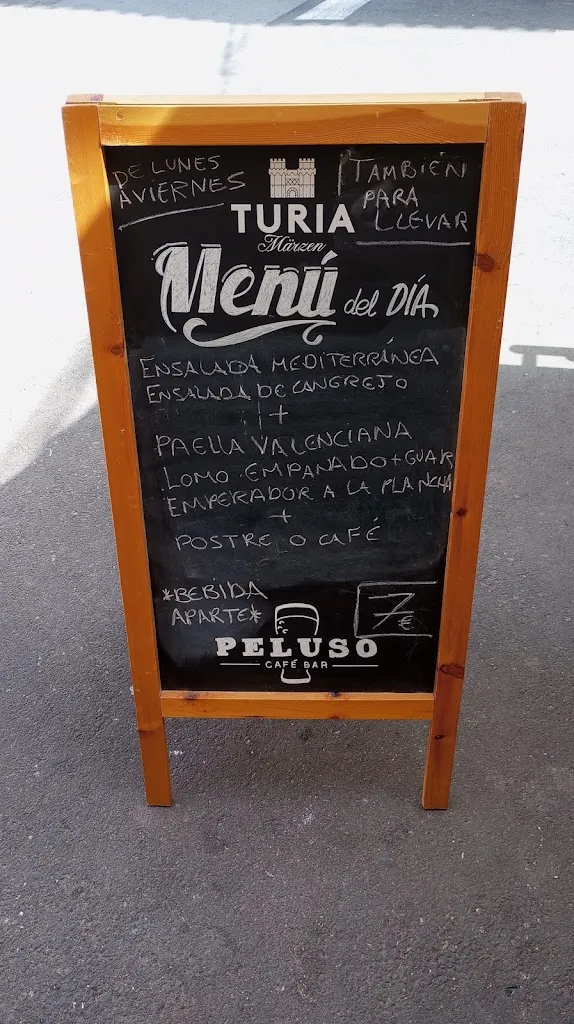 DE LUNES
A VIERNES
TAMBIÉN
PARA
LLEVAR
TURIA
Märzen
Menú del DÍA
ENSALADA MEDITERRÁNEA
ENSALADA DE CANGREJO
+
PAELLA VALENCIANA
LOMO EMPANADO + GUAR
EMPERADOR A LA PLANCHA
+
POSTRE O CAFÉ
*BEBIDA
APARTE*
7€
PELUSO
CAFÉ BAR